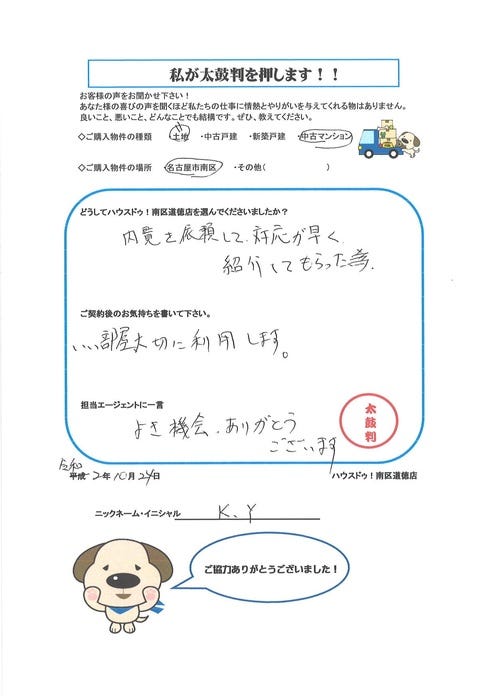 私が太鼓判を押します！！
お客様の声をお聞かせ下さい！
あなた様の喜びの声を聞くほど私たちの仕事に情熱とやりがいを与えてくれる物はありません。
良いこと、悪いこと、どんなことでも結構です。ぜひ、教えてください。
◇ご購入物件の種類　土地　・中古戸建　・新築戸建　・中古マンション
◇ご購入物件の場所　・名古屋市南区　・その他（　　　　　　）
どうしてハウスドゥ！南区道徳店を選んでくださいましたか？
内覧を依頼して、対応が早く
紹介してもらった為。
ご契約後のお気持ちを書いて下さい。
いい部屋大切に利用します。
担当エージェントに一言
よき機会、ありがとう
ございます
太鼓判
令和
平成 2年10月24日
ハウスドゥ！南区道徳店
ニックネーム・イニシャル　K.Y
ご協力ありがとうございました！